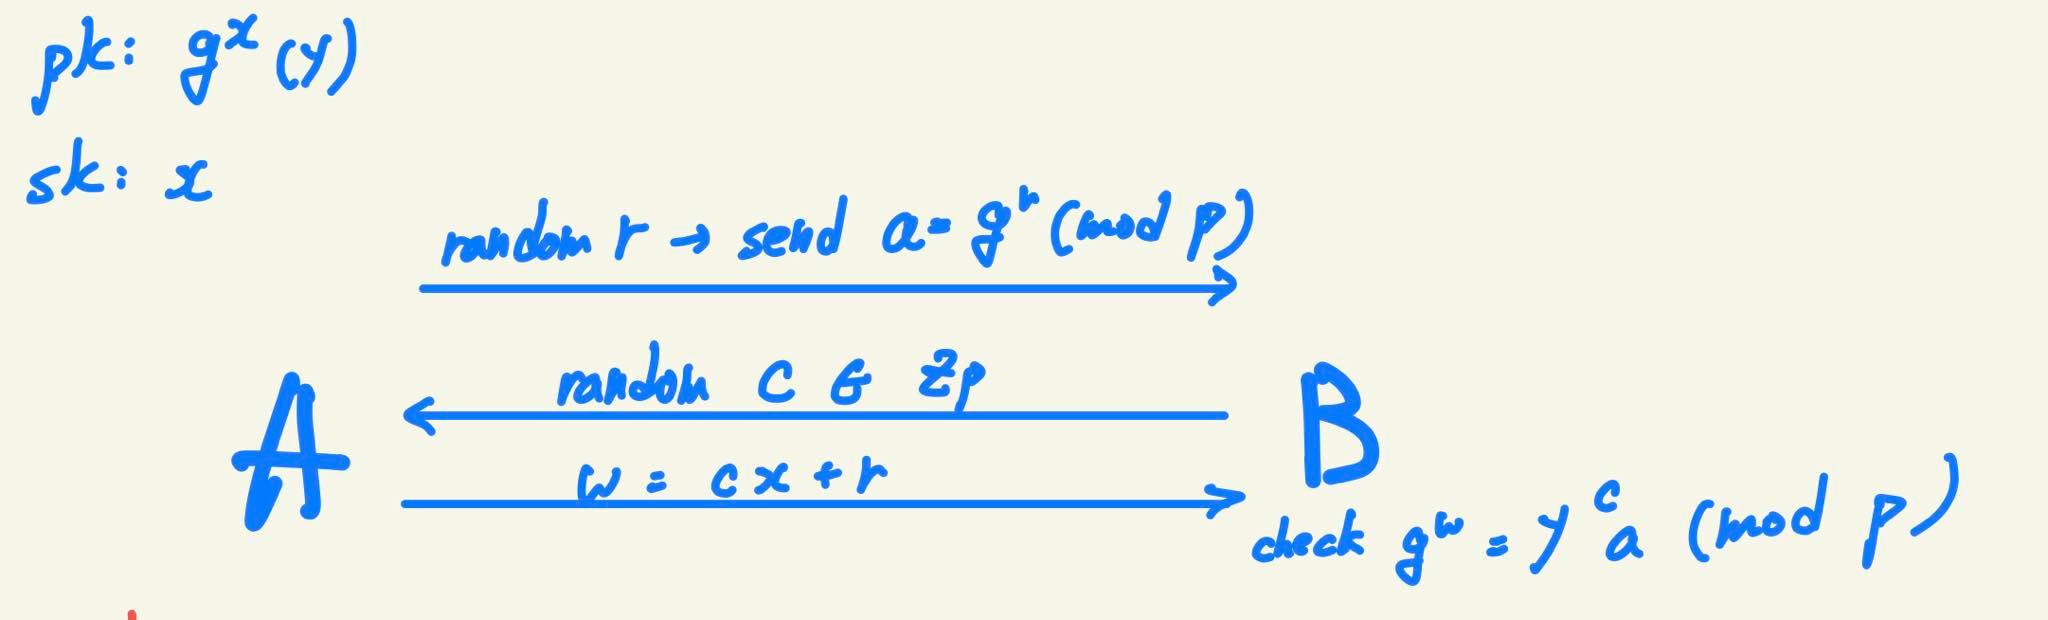 pk: g^x (y)
sk: x
random r → send a = g^r (mod p)
random c ∈ Zp
A
B
w = cx + r
check g^w = y^c a (mod p)